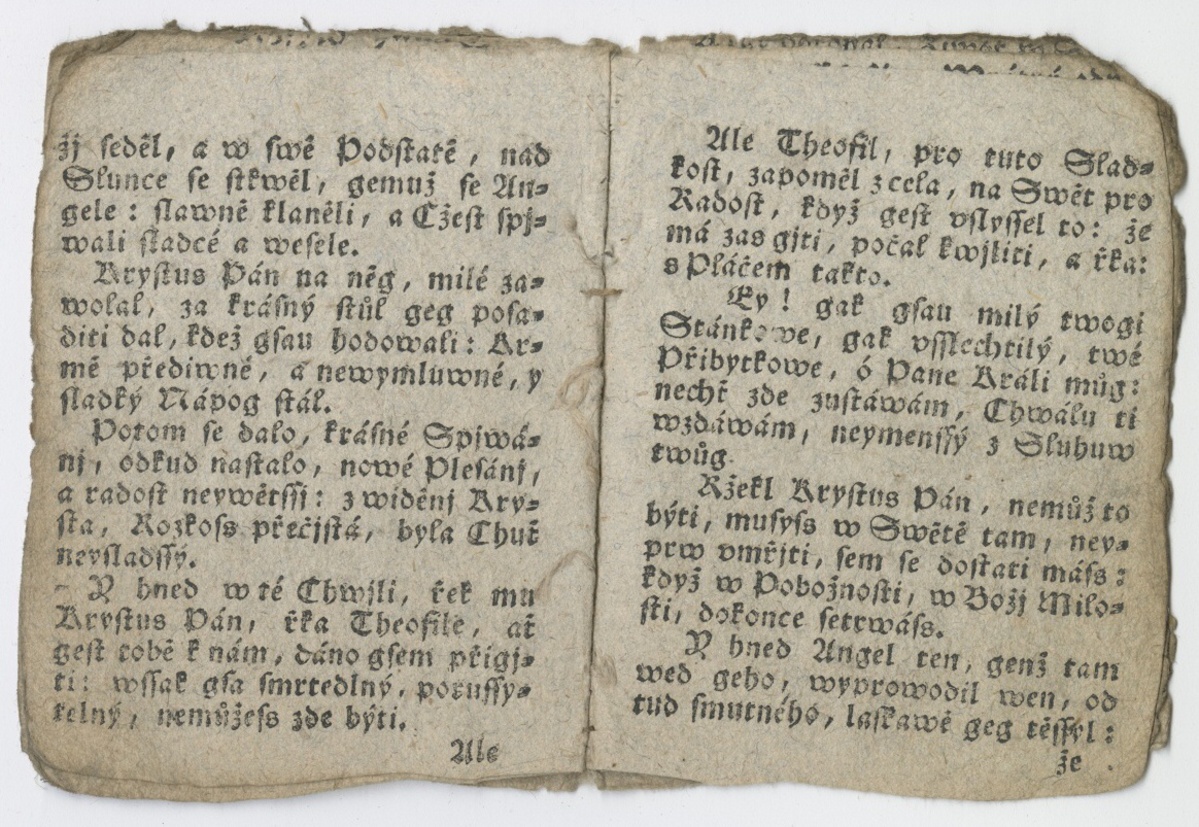 žj seděl, a w swě Podstatě, nad
Slunce se stkwěl, gemuž se An=
gele: slawně klaněli, a Cžest spj=
wali sladcé a wesele.
Krystus Pán na něg, milé za=
wolal, za krásný stůl geg posa=
diti dal, kdež gsau hodowali: Kr=
mě předirwné, a newymluwné, y
sladký Nápog stál.
Potom se dalo, krásné Spjwá=
nj, odkud nastalo, nowé Plesánj,
a radost neywětssj: z widěnj Kry=
sta, Rozkoss přečjstá, byla Chuť
neysladssý.
Y hned w té Chwjli, řek mu
Krystus Pán, řka Theofile, ač
gest tobě k nám, dáno gsem přigj=
ti: wssak gsa smrtedlný, porussy=
telný, nemůžess zde býti.
Ale
Ale Theofil, pro tuto Slad=
kost, zapoměl zcela, na Swět pro
Radost, když gest vslyssel to: že
má zas gjti, počal kwjliti, a řka:
s Pláčem takto.
Ey! gak gsau milý twogi
Stánkowe, gak vsslechtilý, twé
Přibytkowe, ó Pane Králi můg:
nechť zde zustáwám, Chwálu ti
wzdáwám, neymenssý z Sluhuw
twůg.
Ržekl Krystus Pán, nemůž to
býti, musyss w Swětě tam, ney=
prw vmřjti, sem se dostati máss:
když w Pobožnosti, w Božj Milo=
sti, dokonce setrwáss.
Y hned Angel ten, genž tam
wed geho, wyprowodil wen, od
tud smutného, laskawě geg těssyl:
že